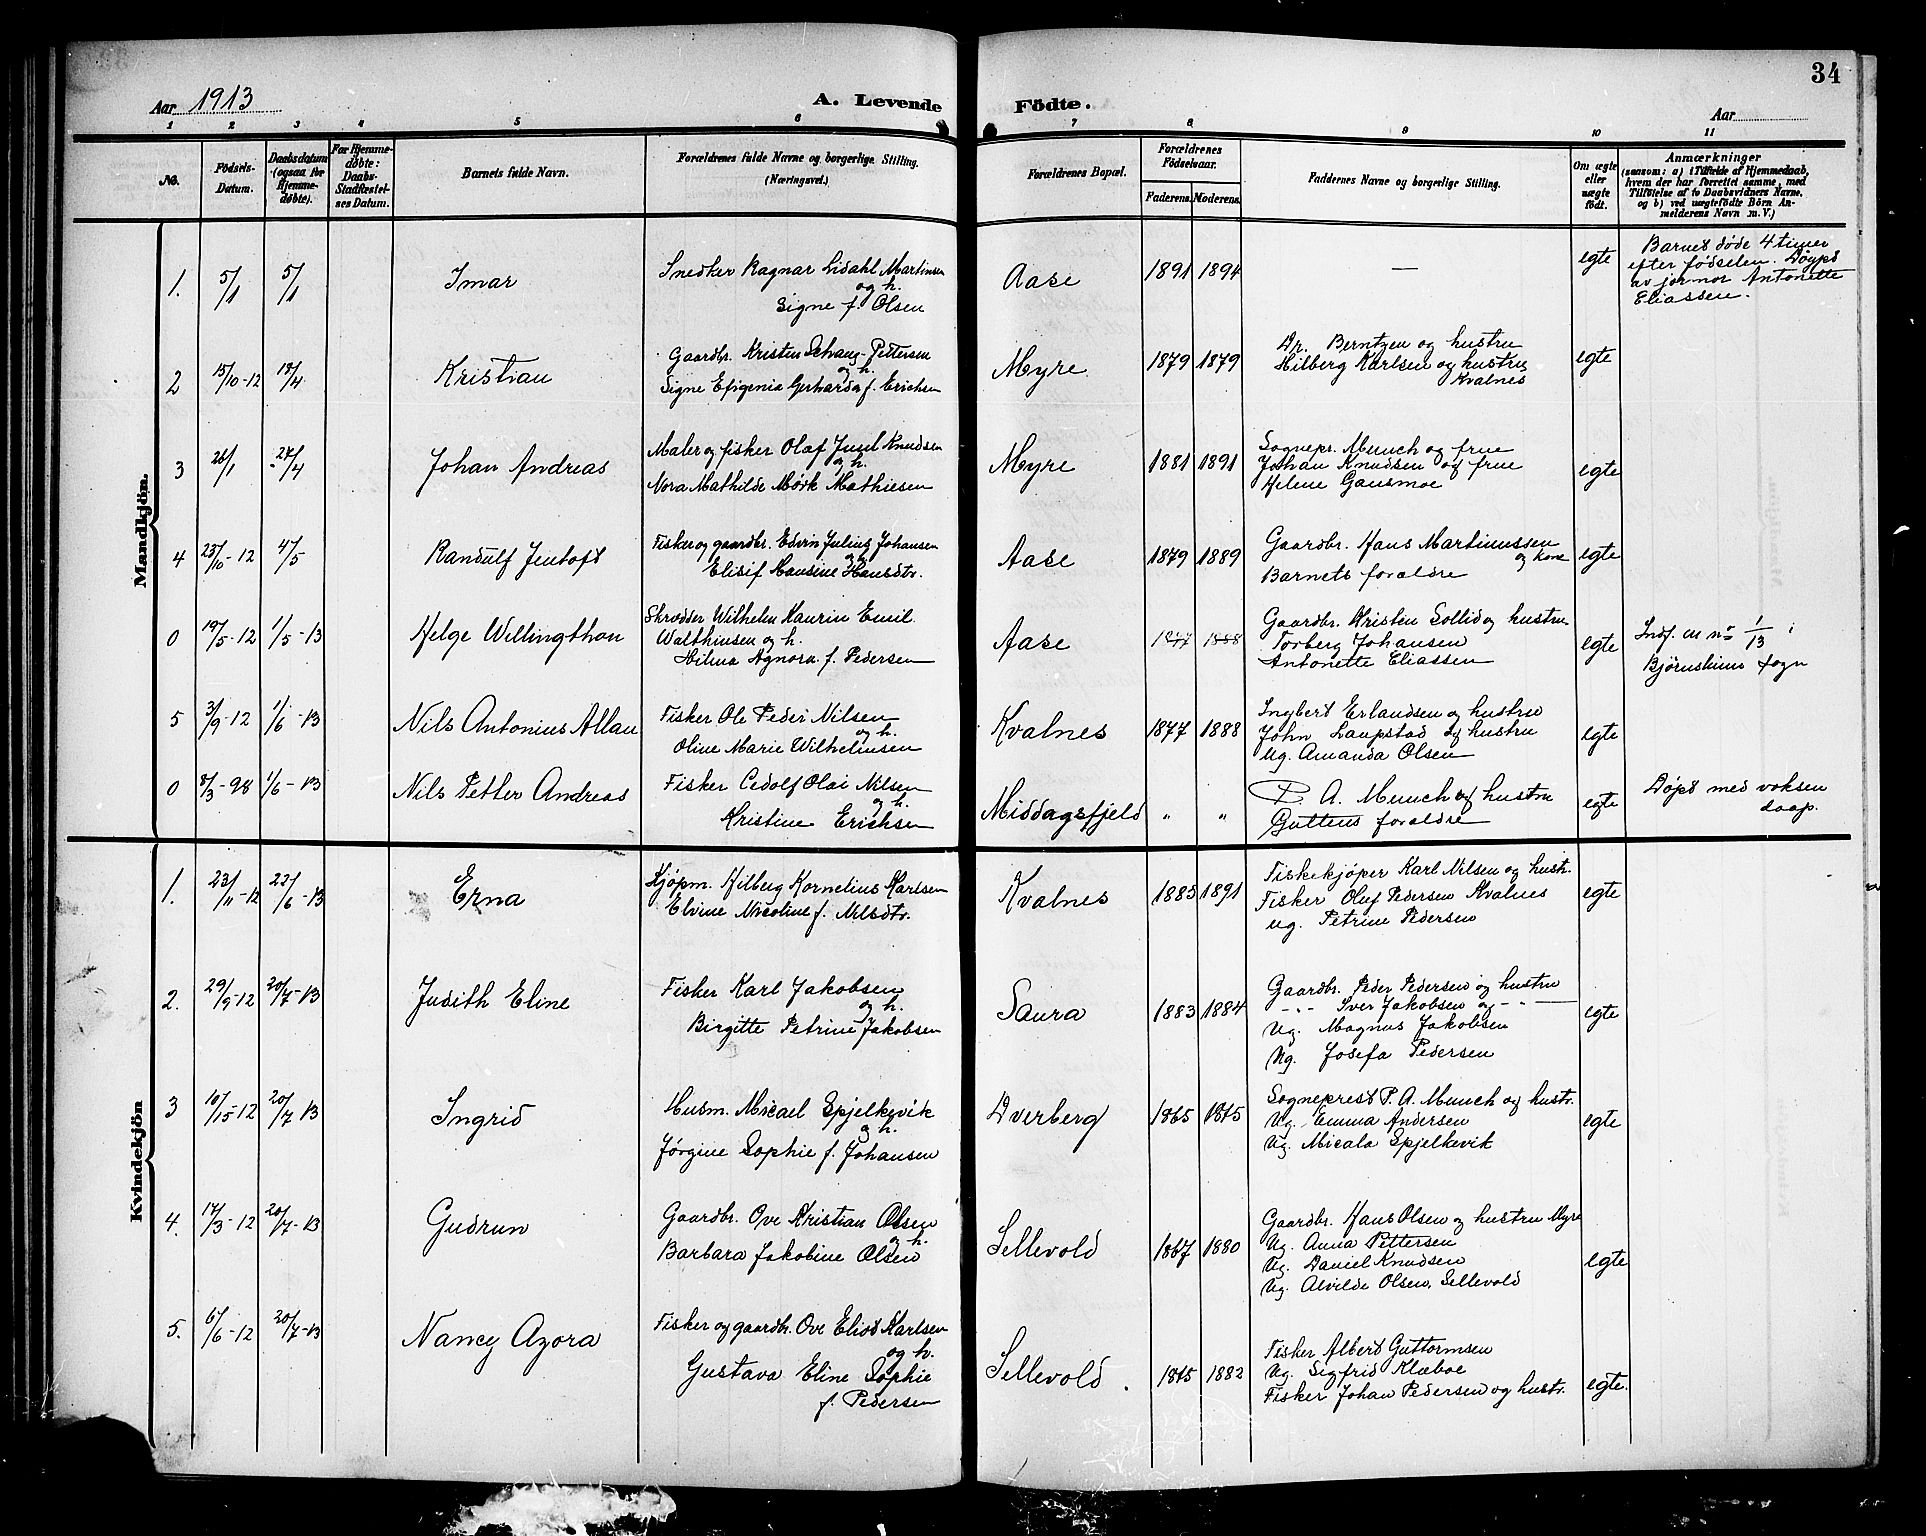 34
Aar 1913
A. Levende Födte.
Aar
1 2 3 4 5 6 7 8 9 10 11
No.
Födsels-Datum.
Daabsdatum (ogsaa for Hjemmedöbte).
For Hjemmedöbte: Daabs-Stadfæstelses Datum.
Barnets fulde Navn.
Forældrenes fulde Navne og borgerlige Stilling. (Næringsvei.)
Forældrenes Bopæl.
Forældrenes Födselsaar.
Faderens. Moderens.
Faddernes Navne og borgerlige Stilling.
Om ægte eller uægte födt.
Anmærkninger
(saasom: a) i Tilfælde af Hjemmedaab,
hvem der har forrettet samme, med
Tilföielse af to Daabsvidners Navne,
og b) ved uægtefödte Börn An-
melderens Navn m. V.)
Mandkjön.
1. 5/1 5/1 Imar
Snedker Ragnar Lidahl Martinsen
og h.
Signe f. Olsen
Aase 1891 1894 — egte
Barnet døde 4 timer
efter fødselen. Døypt
av jormor Antonette
Eliassen.
2 15/10-12 13/4 Kristian
Gaardbr. Kristen Schang-Pettersen
og h.
Signe Efigenia Gerharda f. Erichsen
Myre 1879 1879
Dr. Berntzen og hustru
Hilberg Karlsen og hustru
Kvalnes
egte
3 28/1 27/4 Johan Andreas
Maler og fisker Olaf Juul Knudsen
og h.
Nora Mathilde Mørk Mathiesen
Myre 1881 1891
Sognepr. Munch og frue
Johan Knudsen og frue
Helene Gausmoe
egte
4 23/10-12 4/5 Randulf Jentoft
Fisker og gaardbr. Edvin Julius Johansen
og h.
Elisif Hansine Hansdtr.
Aase 1879 1889
Gaardbr. Hans Martinussen
og kone
Barnets forældre
egte
0 19/5-12 1/5-13 Helge Willingthon
Skrædder Wilhelm Kaurin Emil
Walthinsen og h.
Hilma Agnora f. Pedersen
Aase 1877 1888
Gaardbr. Kristen Sollid og hustru
Torberg Johansen
Antonette Eliassen
egte
Indf. m no 1/13 i
Bjørnskinn sogn
5 3/9-12 1/6-13 Nils Antonius Allan
Fisker Ole Peder Nilsen
og h.
Oline Marie Wilhelmsen
Kvalnes 1877 1888
Ingbert Erlandsen og hustru
John Laupstad og hustru
Ug. Amanda Olsen
egte
0 8/3-98 1/6-13 Nils Petter Andreas
Fisker Cedolf Olai Nilsen
og h.
Kristine Erichsen
Middagsfjeld " "
P. A. Munch og hustru
Guttens forældre
egte
Døpt med voksen
daap.
Kvindekjön
1. 23/11-12 22/6-13 Erna
Kjøpm. Hilberg Kornelius Karlsen
Elvine Nicoline f. Nilsdtr.
Kvalnes 1885 1891
Fiskekjøper Karl Nilsen og hustr.
Fisker Oluf Pedersen Kvalnes
ug. Petrine Pedersen
egte
2. 29/9-12 20/7-13 Judith Eline
Fisker Karl Jakobsen
og h.
Birgitte Petrine Jakobsen
Saura 1883 1884
Gaardbr. Peder Pedersen og hustru
-"- Iver Jakobsen og -"-
Ug. Magnus Jakobsen
Ug. Josefa Pedersen
egte
3 10/15-12 20/7 13 Ingrid
Husm. Micael Spjelkevik
og h.
Jørgine Sophie f. Johansen
Dverberg 1865 1865
Sogneprest P. A. Munch og hustr.
Ug. Emma Andersen
Ug. Micala Spjelkevik
egte
4. 17/3-12 20/7-13 Gudrun
Gaardbr. Ove Kristian Olsen
og h.
Barbara Jakobine Olsen
Sellevold 1867 1880
Gaardbr. Hans Olsen og hustru Myre
Ug. Anna Pettersen
Ug. Daniel Knudsen
Ug. Alvilde Olsen, Sellevold
egte
5. 6/6-12 20/7-13 Nancy Azora
Fisker og gaardbr. Ove Eliot Karlsen
og h.
Gustava Eline Sophie
f. Pedersen
Sellevold. 1875 1882
Fisker Albert Guttormsen
Ug. Sigfrid Klæboe
Fisker Johan Pedersen og hustr.
egte.